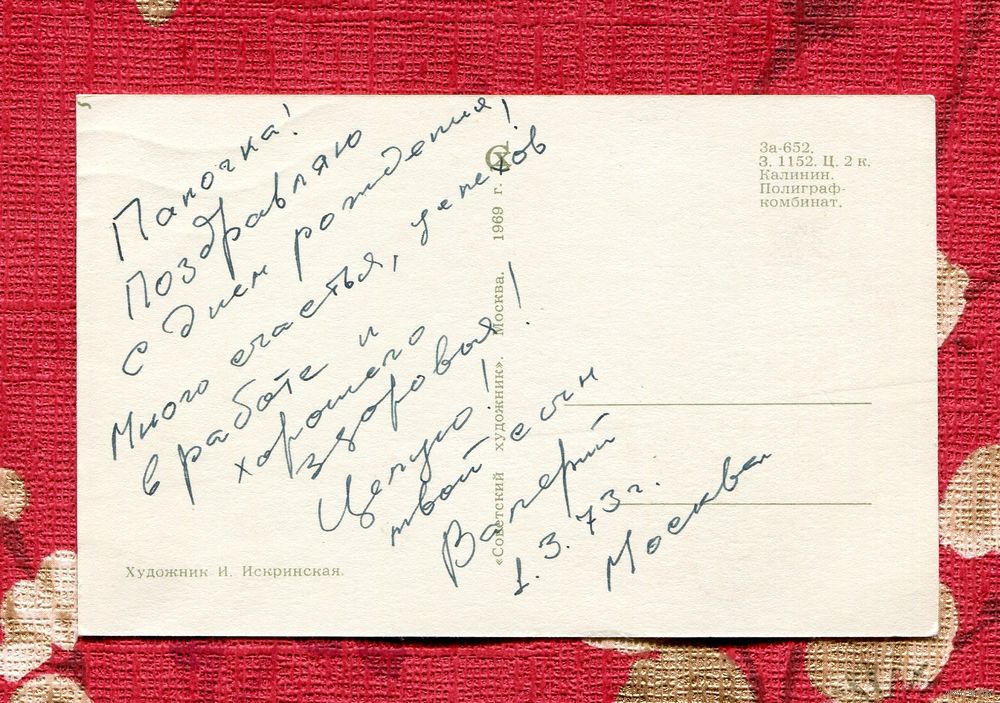 Папочка!
Поздравляю
с Днем рождения!
Много счастья, успехов
в работе и
хорошего
здоровья!
Целую!
твой сын
Валерий
1.3.73 г.
Москва
«Советский художник». Москва. 1969 г.
За-652.
З. 1152. Ц. 2 к.
Калинин.
Полиграф-
комбинат.
Художник И. Искринская.